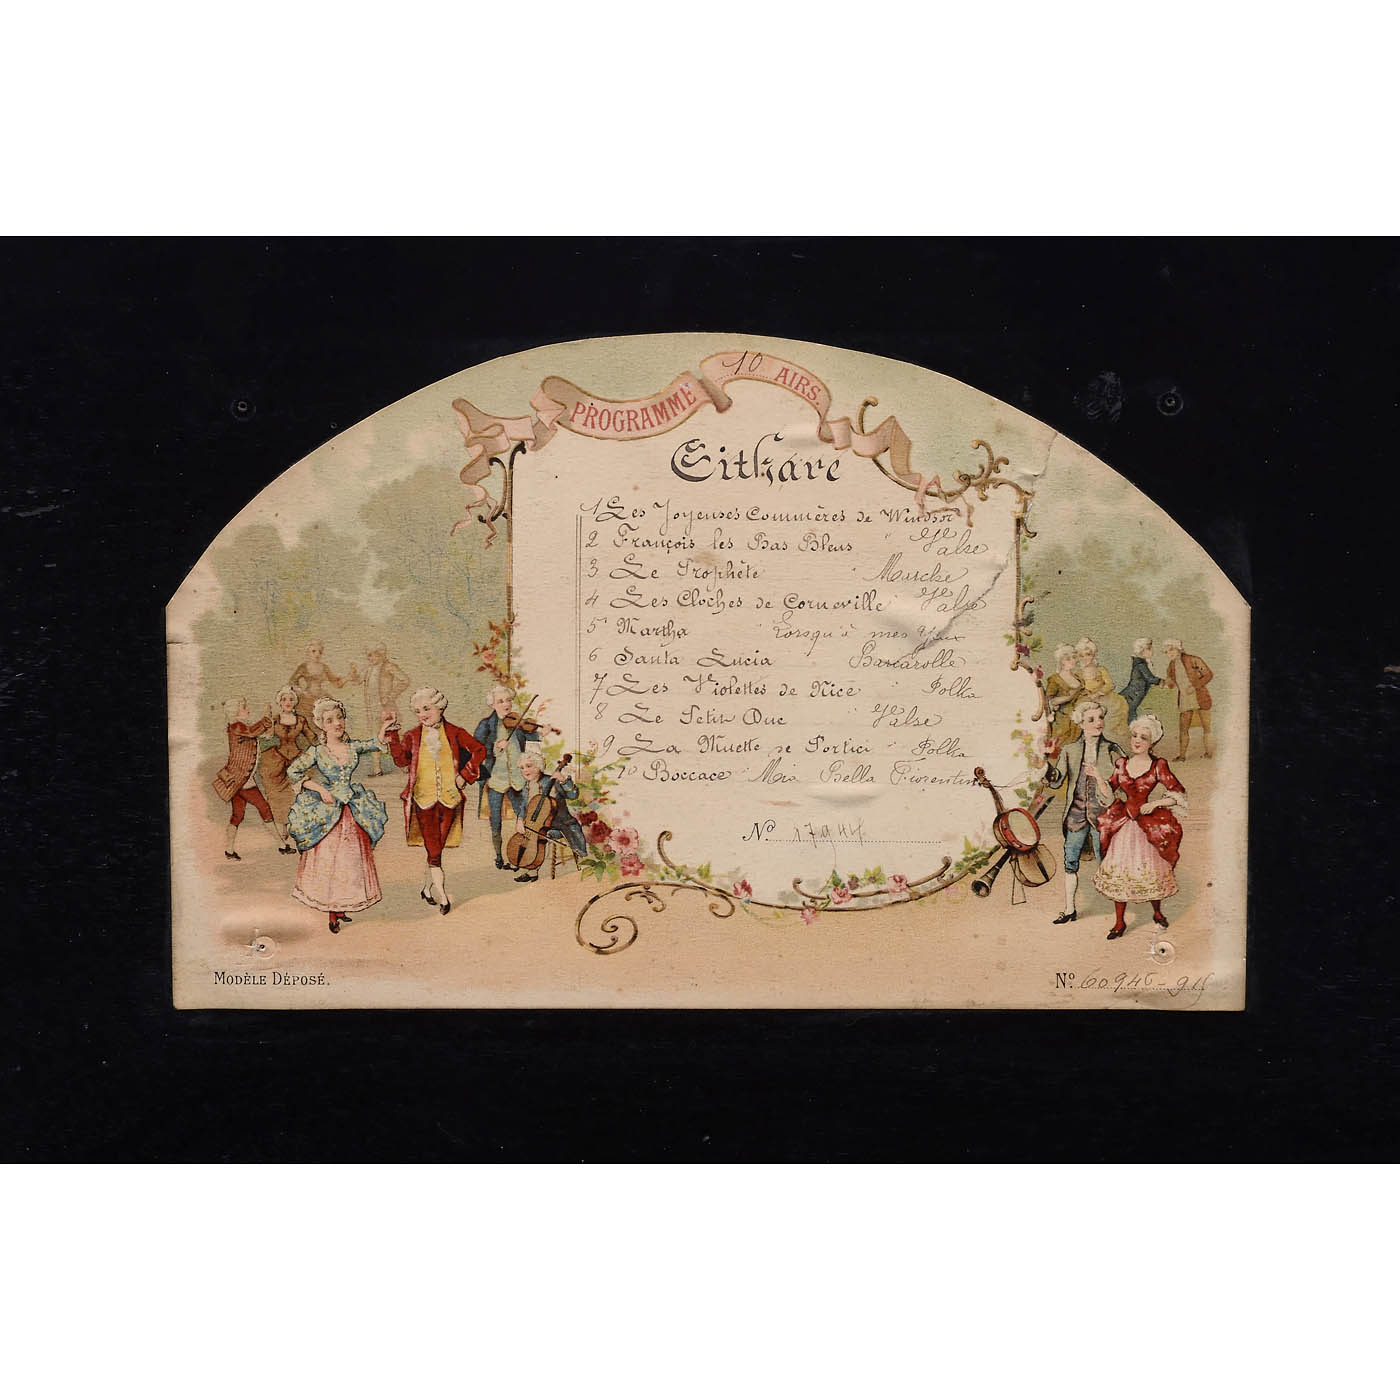 PROGRAMME 10 AIRS.
Cithare
1 Les Joyeuses Commères de Windsor
2 François les Bas Bleus " Valse
3 Le Prophète " Marche
4 Les Cloches de Corneville " Valse
5 Martha " Lorsqu'à mes Yeux
6 Santa Lucia " Barcarolle
7 Les Violettes de Nice " Polka
8 Le Petit Duc " Valse
9 La Muette de Portici " Polka
10 Boccace " Mia Bella Fiorentina
No 17944
MODÈLE DÉPOSÉ.
No.